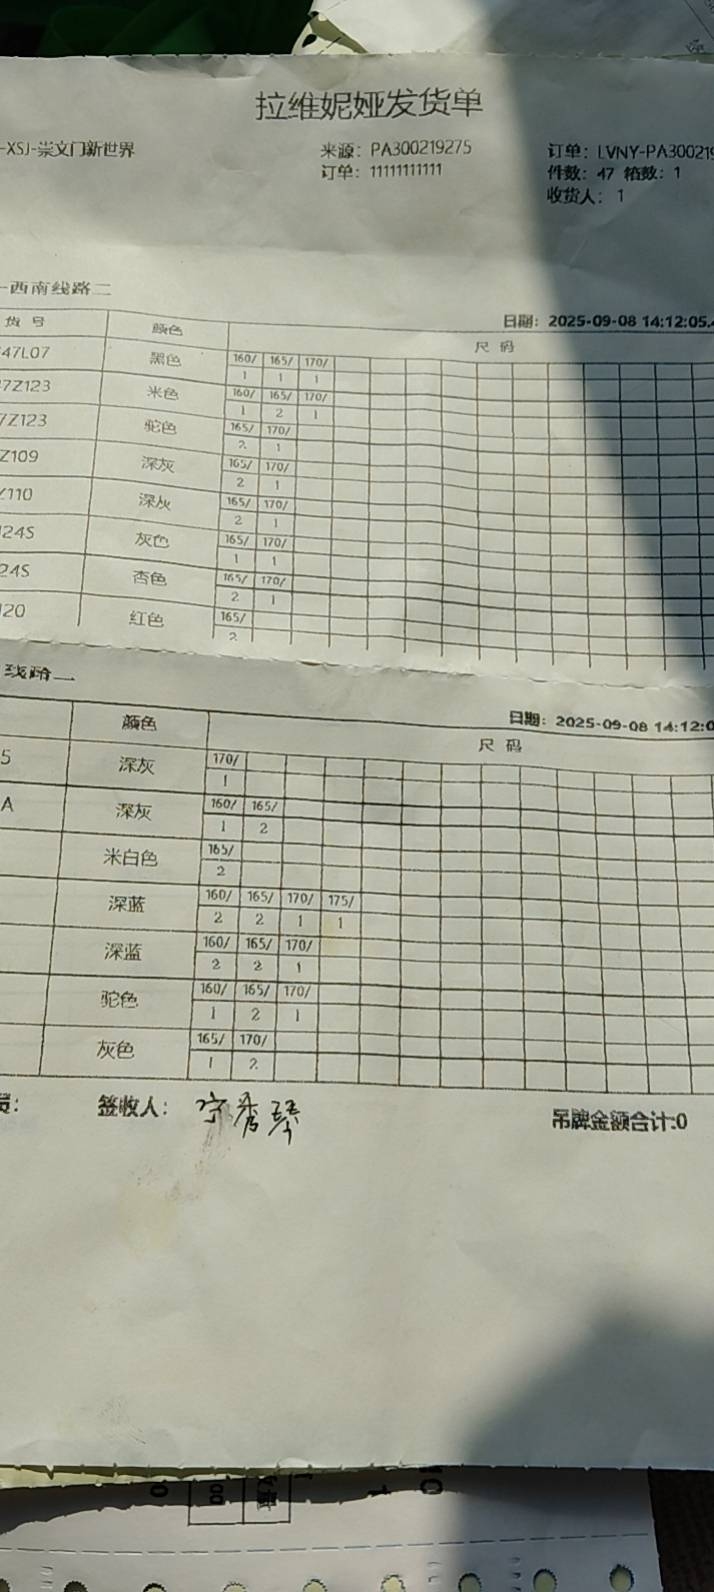 拉维妮娅发货单
-XSJ-崇文门新世界 来源：PA300219275 订单：LVNY-PA300219
订单：11111111111 件数：47 箱数：1
收货人：1
-西南线路二
日期：2025-09-08 14:12:05.
货号 颜色 尺码
47L07 黑色 160/ 165/ 170/
1 1 1
7Z123 米色 160/ 165/ 170/
1 2 1
Z123 驼色 165/ 170/
2 1
Z109 深灰 165/ 170/
2 1
Z110 深灰 165/ 170/
2 1
24S 灰色 165/ 170/
1 1
24S 杏色 165/ 170/
2 1
120 红色 165/
2
线路二
日期：2025-09-08 14:12:0
颜色 尺码
5 深灰 170/
1
A 深灰 160/ 165/
1 2
米白色 165/
2
深蓝 160/ 165/ 170/ 175/
2 2 1 1
深蓝 160/ 165/ 170/
2 2 1
驼色 160/ 165/ 170/
1 2 1
灰色 165/ 170/
1 2
员： 签收人： 宁秀琴 吊牌金额合计:0